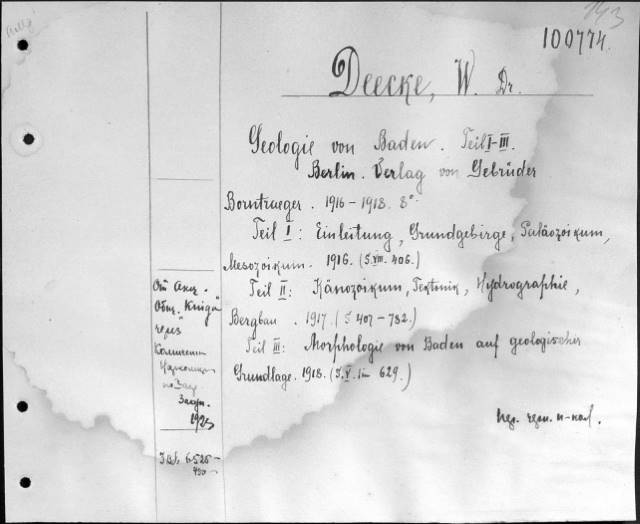 143
100774.
Deecke, W. Dr.
Geologie von Baden. Teil I-III.
Berlin. Verlag von Gebrüder
Borntraeger. 1916-1918. 8°.
Teil I: Einleitung, Grundgebirge, Paläozoikum,
Mesozoikum. 1916. (S. VIII. 406.)
Teil II: Känozoikum, Tektonik, Hydrographie,
Bergbau. 1917. (S 407-782.)
Teil III: Morphologie von Baden auf geologischer
Grundlage. 1918. (S. V. 629.)
От Акц.
Общ. "Книга"
через
по Загр.
Загр.
1925